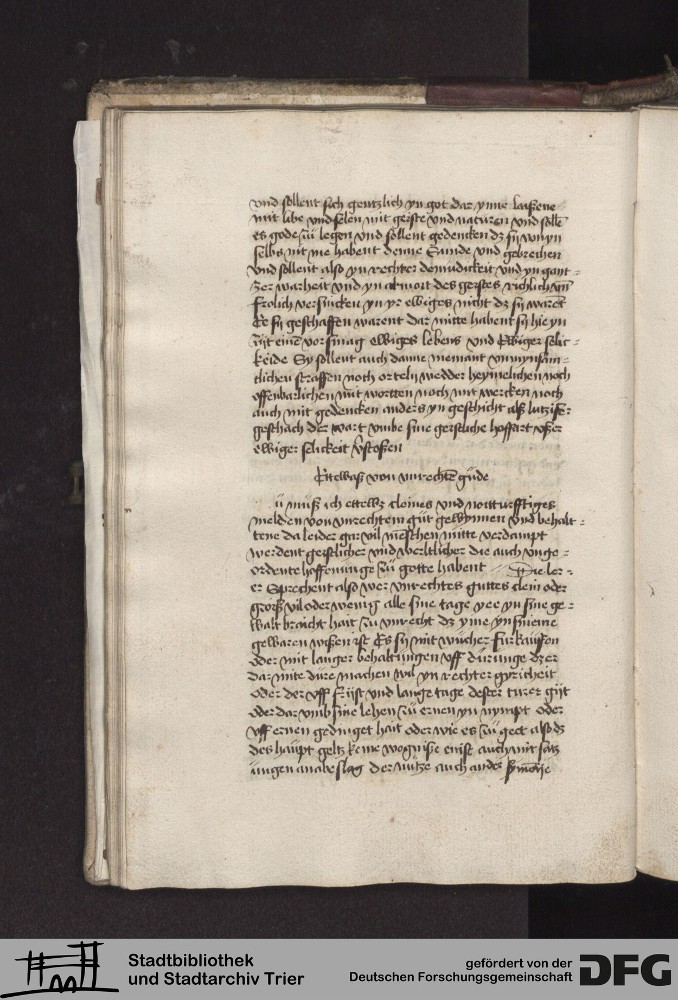 vnd sollent sich gentzlich yn got dar ynne laißene
mit libe vnd selen mit geiste vnd naturen vnd solle
es gode zü legen vnd sollent gedencken dz sy von yn
selbs nit me habent denne Sunde vnd gebrechen
vnd sollent also yn rechter demüdickeit vnd yn gant=
zer warheit vnd yn armort des geistes richlich vnd
frolich versincken yn yr ewiges nicht dz sy warent
Ee sy geschaffen warent dar mitte habent sy hie yn
zijt eine vorsmag ewiges lebens vnd Ewiger selic=
keide Sy sollent auch danne niemant
straffen noch orteln wedder heymelichen noch
offenbarlichen mit wortten noch mit wercken noch
auch mit gedencken anders yn geschicht als lutzifer
geschach der wart vmbe sine geistliche hoffart vßer
ewiger selickeit vstoßen
Ettewaß von vnrechte gude
ü müß ich ettewz cleines vnd notturfftiges
melden von vnrechtem güt gewynnen vnd behalt=
tene da leider gar vil meschen mitte verdampt
werdent geistlicher vnd werltlicher die auch vnge=
ordente hoffenunge zü gotte habent Die ler=
er Sprechent also wer vnrechtes guttes clein oder
groß vil oder wenig alle sine tage yee yn sine ge=
walt braicht hait zu vnrecht dz yme yn sineme
gewaren wißen ist Es sy mit wücher fürkauffen
oder mit langer behaltungen vff dürunge dz er
dar mite düre machen wil yn rechter gyricheit
oder der vff frijst vnd lange tage dester turer git
oder dar vmb sine lehen zü ernen yn nympt oder
vff ernen gedinget hait oder wie es zü geet also dz
des haupt geltz keine wogniße enist auch mit satz
ungen an abeslag der nütze auch ander symonie
Stadtbibliothek
und Stadtarchiv Trier
gefördert von der
Deutschen Forschungsgemeinschaft
DFG